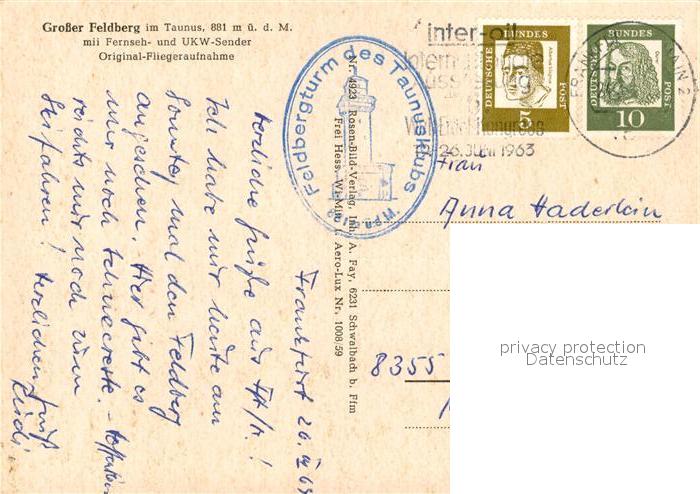 Großer Feldberg im Taunus, 881 m ü. d. M.
mit Fernseh- und UKW-Sender
Original-Fliegeraufnahme
inter-oil
Internationale
Ausstellung
26. JUNI 1963
DEUTSCHE BUNDESPOST
5
DEUTSCHE BUNDESPOST
10
FRANKFURT MAIN 2
Feldbergturm des Taunusklubs
Nr. 4923 Rosen-Bild-Verlag, Inh. A. Fay, 6231 Schwalbach b. Ffm
Frei Hess. Wi-Min. Aero-Lux Nr. 1008/59
Frankfurt 26.
Herzliche Grüße aus Ffm.!
Ich habe mir heute am
Sonntag mal den Feldberg
angesehen. Hier gibt es
nur noch Schneereste. -
nur noch zum
Skifahren! Herzlichen Gruß
Frau
Anna Haderlein
8355
privacy protection
Datenschutz